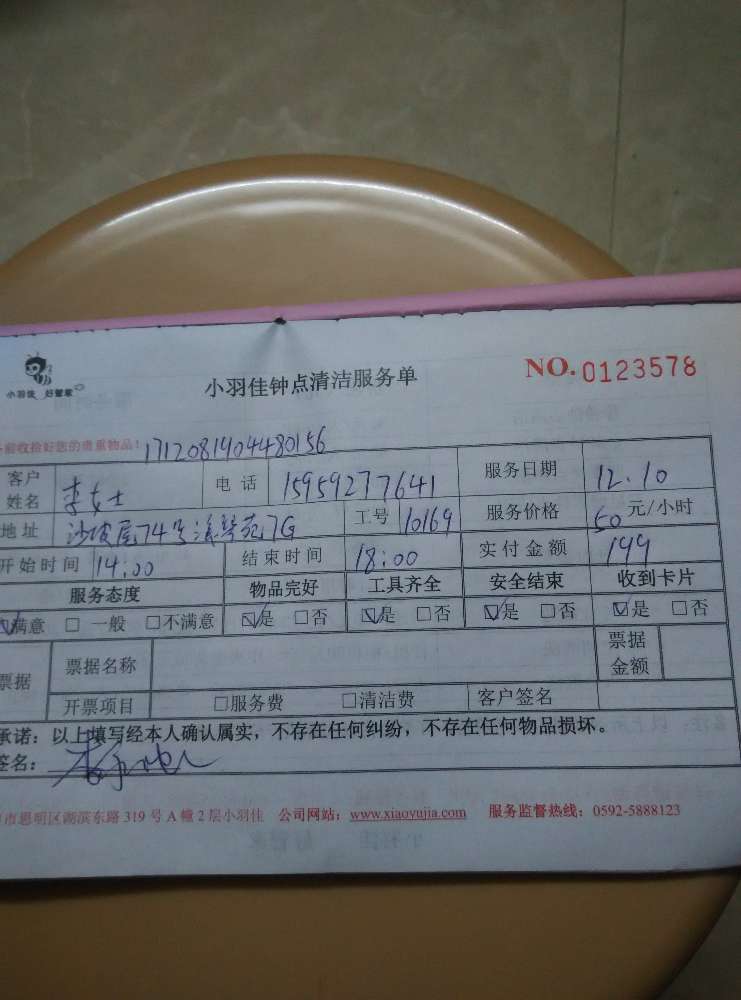 小羽佳 好管家
小羽佳钟点清洁服务单 NO. 0123578
前收拾好您的贵重物品! 1712081904480156
客户姓名 李女士 电话 15959277641 服务日期 12.10
地址 沙坡尾74号 7G 工号 10169 服务价格 50 元/小时
开始时间 14:00 结束时间 18:00 实付金额 199
服务态度 物品完好 工具齐全 安全结束 收到卡片
☑满意 □ 一般 □不满意 ☑是 □否 ☑是 □否 ☑是 □否 ☑是 □否
票据 票据名称 票据金额
开票项目 □服务费 □清洁费 客户签名
承诺：以上填写经本人确认属实，不存在任何纠纷，不存在任何物品损坏。
签名：
市思明区湖滨东路 319 号 A 幢 2 层小羽佳 公司网站：www.xiaoyujia.com 服务监督热线：0592-5888123